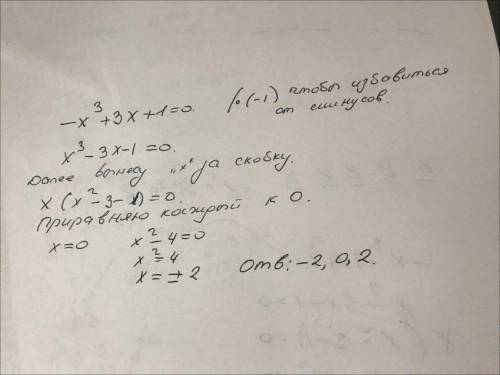 -x³+3x+1=0. |·(-1) чтобы избавиться
от минусов.
x³-3x-1=0.
Далее вынесу „x" за скобку.
x(x²-3-1)=0.
Приравняю каждый к 0.
x=0 x²-4=0
x²=4
x=±2 Отв: -2, 0, 2.